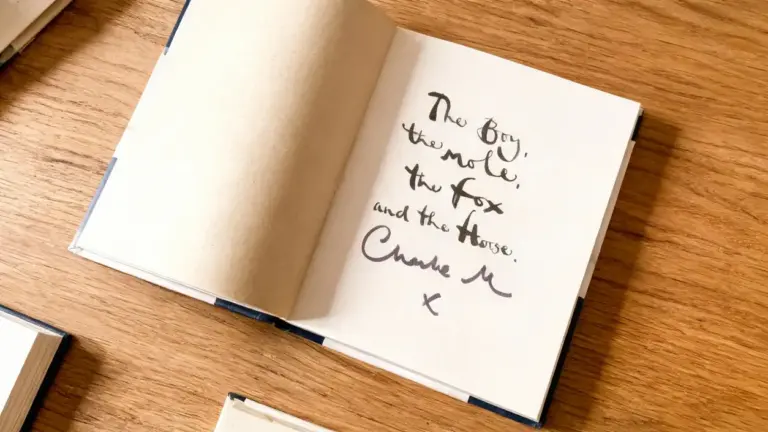 The Boy,
the mole,
the fox
and the Horse.
Charlie M
x